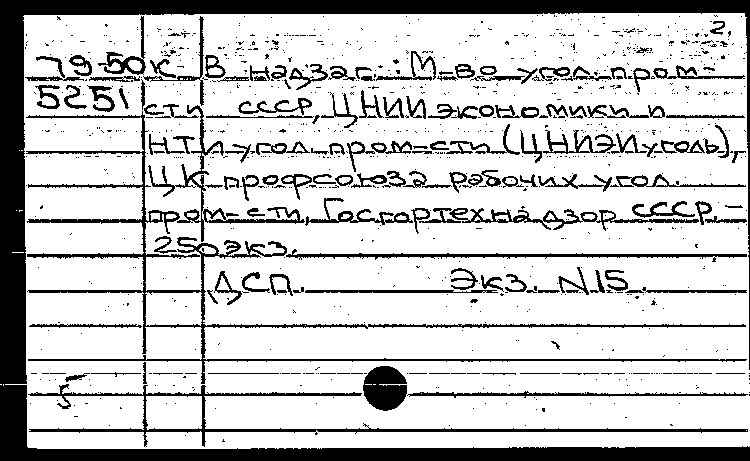 2.
79-50К В надзаг.: М-во угол. пром-
5251 сти СССР, ЦНИИ экономики и
НТИ угол. пром-сти (ЦНИЭИуголь),
ЦК профсоюза рабочих угол.
пром-сти, Госгортехнадзор СССР. -
250 экз.
ДСП. Экз. N15.
5